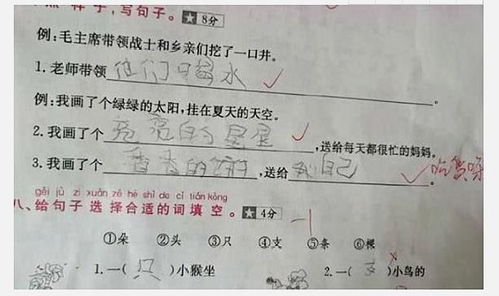 照样子,写句子。★ 8分
例:毛主席带领战士和乡亲们挖了一口井。
1.老师带领他们喝水。
例:我画了个绿绿的太阳,挂在夏天的天空。
2.我画了个亮亮的星星,送给每天都很忙的妈妈。
3.我画了个香香的饼,送给我自己。
吃货呀
gěi jù zi xuǎn zé hé shì de cí tián kòng
八、给句子选择合适的词填空。★ 4分
-1
①朵 ②头 ③只 ④支 ⑤条 ⑥棵
1.一(只)小猴坐 2.一(支)小鸟的